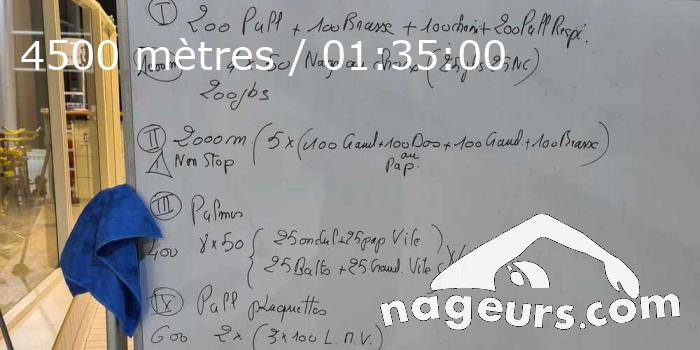 I 200 Pull + 100 Brasse + 100 choix + 200 Pull Respi.
4500 mètres / 01:35:00
4x50 Nage au choix (25 jbs 25 NC)
200 jbs
II 2000m (5x(100 Crawl+100 Dos+100 Crawl+100 Brasse)
ou
Non Stop
Pap.
III Palmes
400 8x50 { 25 ondul+25 pap Vite
25 Batto + 25 Crawl. Vite
nageurs.com
IV Pull plaquettes
600 2x (3x100 L.M.V.)